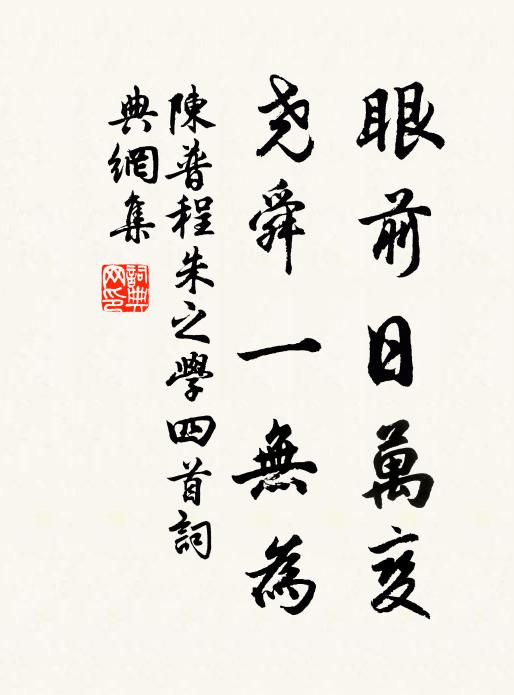 眼前日萬变
堯舜一無為
陳普程朱之學四首詞
典網集
詞典網印